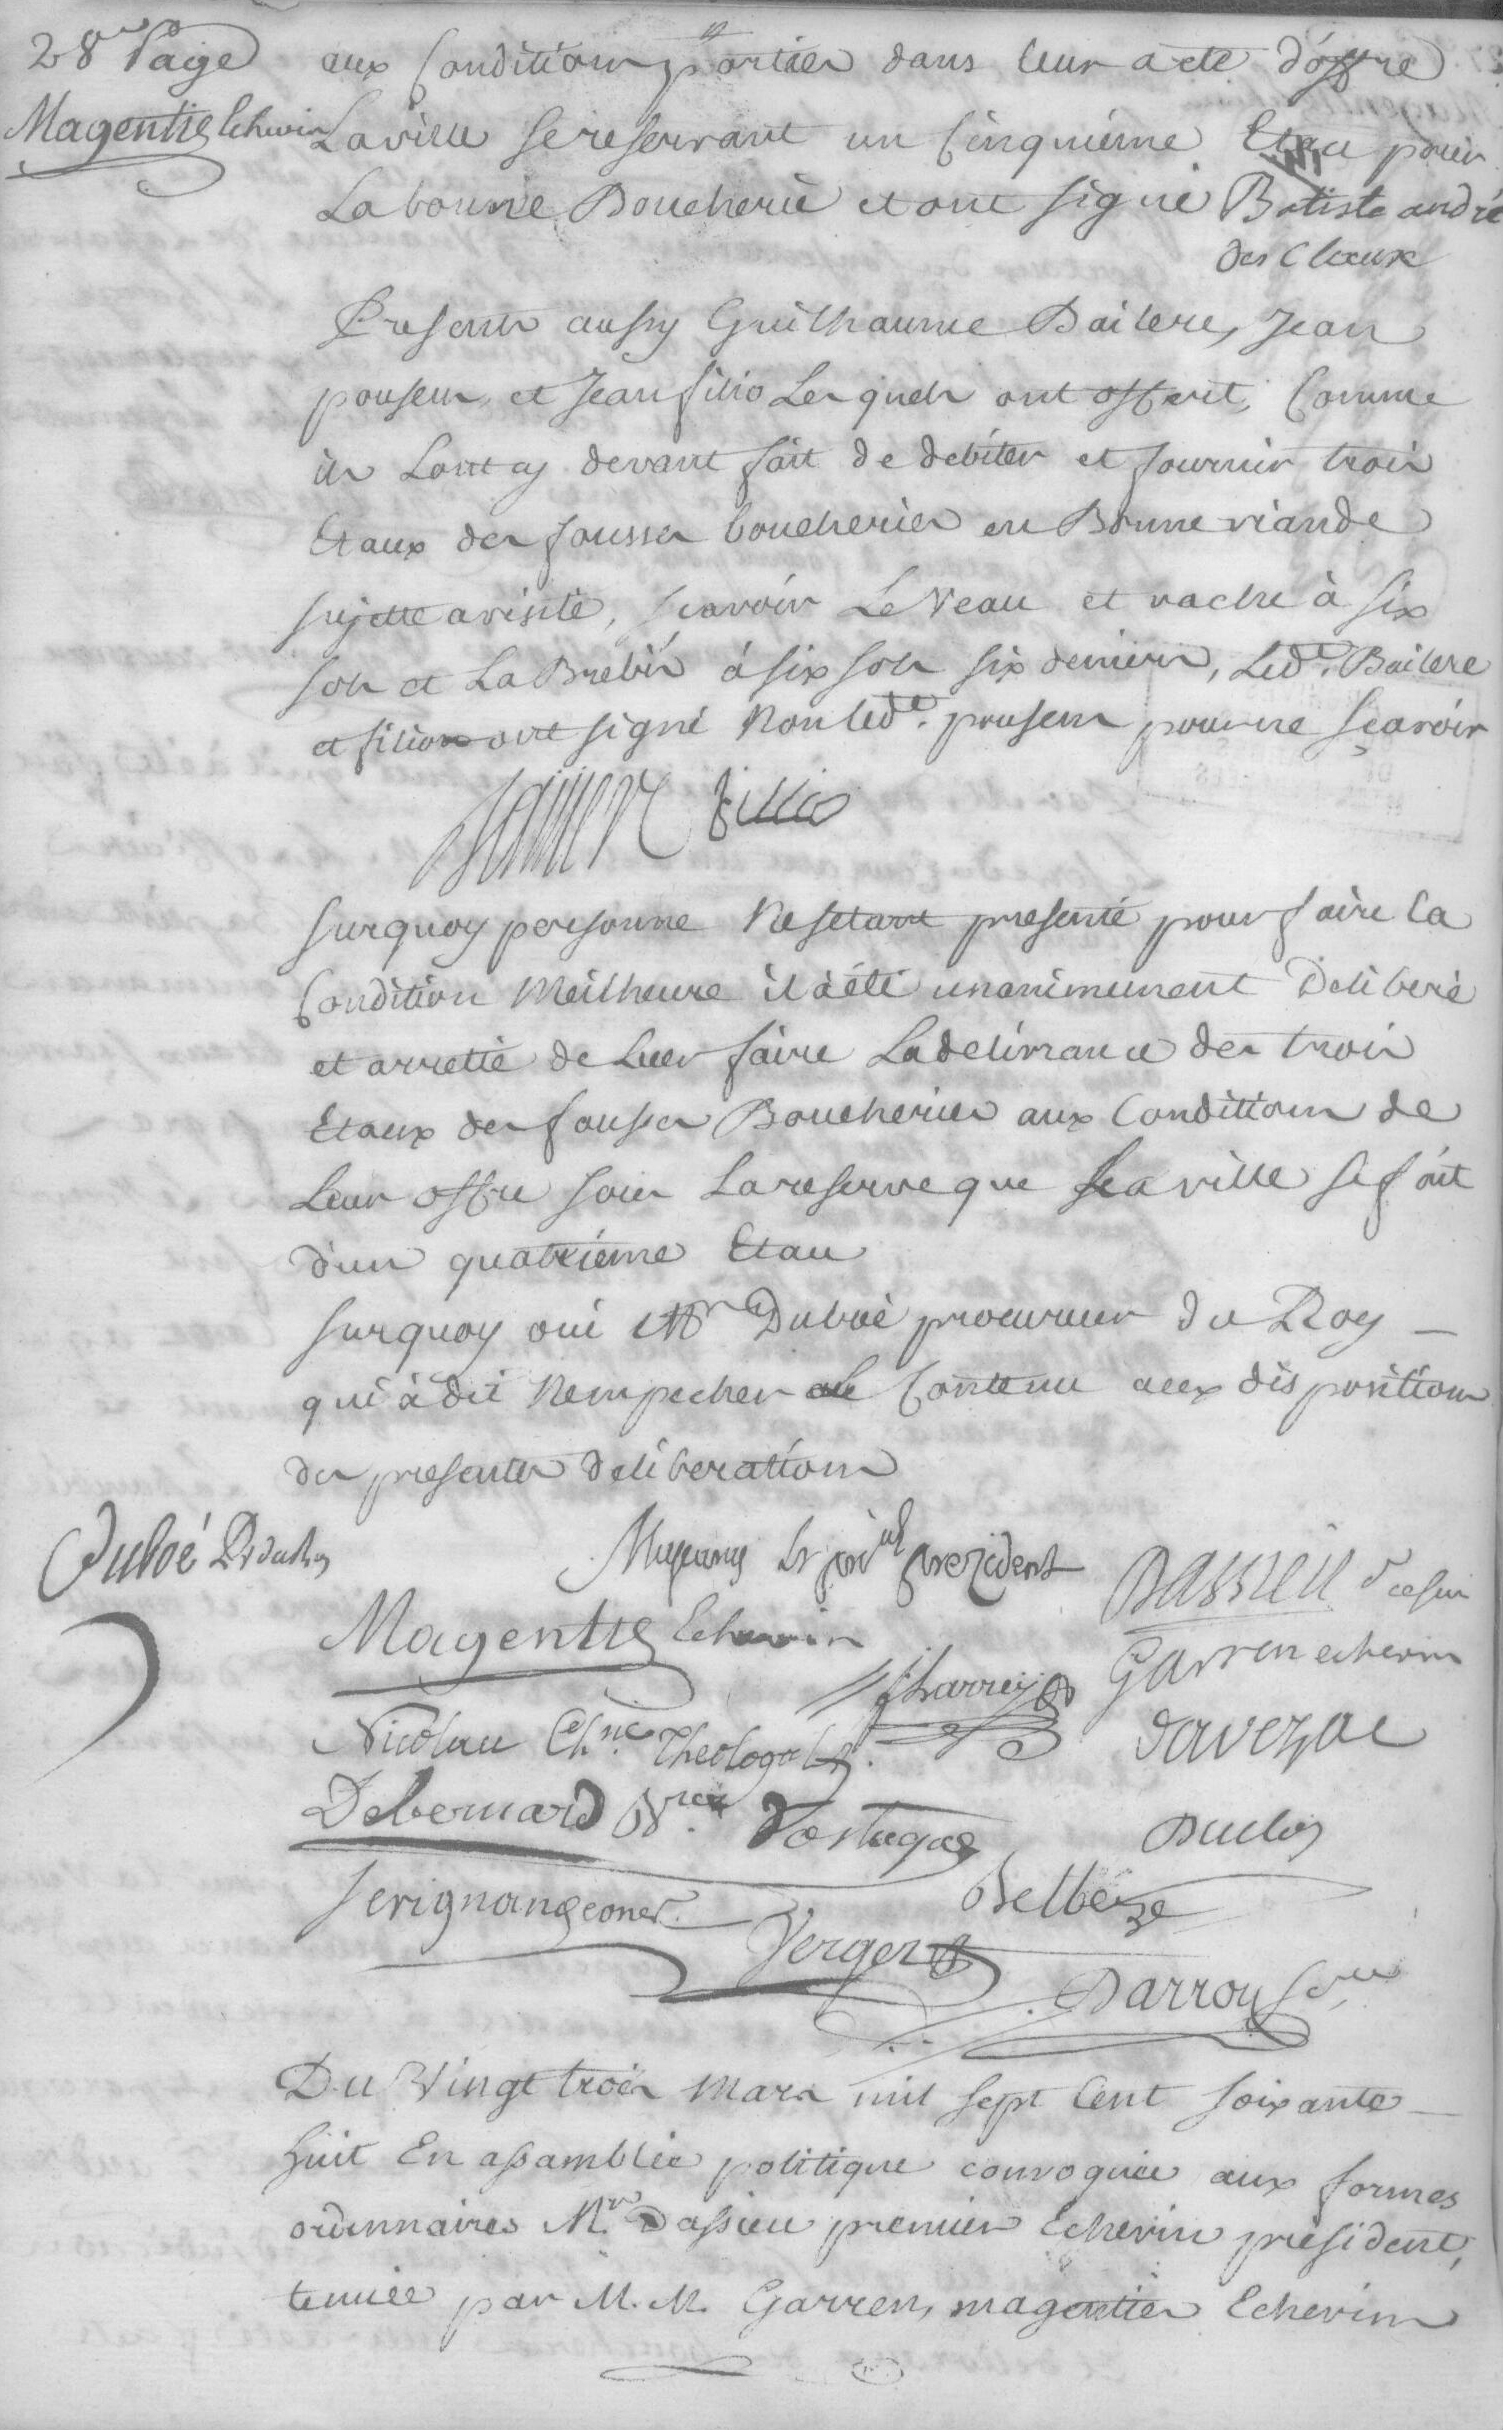 28e Page
Magentie Echevin
aux Conditions portées dans leur acte d'offre
La ville se reservant un Cinquieme Etau pour
La bonne Boucherie et ont signé Batiste andré
des Claux
Presents aussy Guilhaume Bailere, Jean
pouseur et Jean filio Lesquels ont offert, Comme
ils Lont cy devant fait de debiter et fournir trois
Etaux des fausses boucheries en Bonne viande
sujette a visitte, scavoir Le Veau et vache à six
sols et La Brebis à six sols six deniers, Led.t Bailere
et filio ont signé Non led.t pouseur pour ne sçavoir
Bailere fillio
surquoy personne Nesetant presenté pour faire la
Condition Meilheure il a été unanimement Deliberé
et arretté de Leur faire La delivrance des trois
Etaux des fausses Boucheries aux Conditions de
Leur offre sous La reserve que La ville se fait
d'un quatrieme Etau
surquoy oui Mr Duboé procureur du Roy
qui à dit Nempecher le Contenu aux dispositions
des presentes deliberations
Duboé Pr du Roy
president
Dassieu
Magentie Echevin
Garren echevin
Nicolau Ch.ne Theologal
davezac
Debernard
Dastugue
Duclos
Serignan
Delbeze
Verges
Darroy
Du Vingt trois Mars mil sept Cent soixante
huit En assamblée politique convoquée aux formes
ordinnaires Mr Dassieu premier Echevin president,
tenuee par M.M. Garren, magentie Echevins